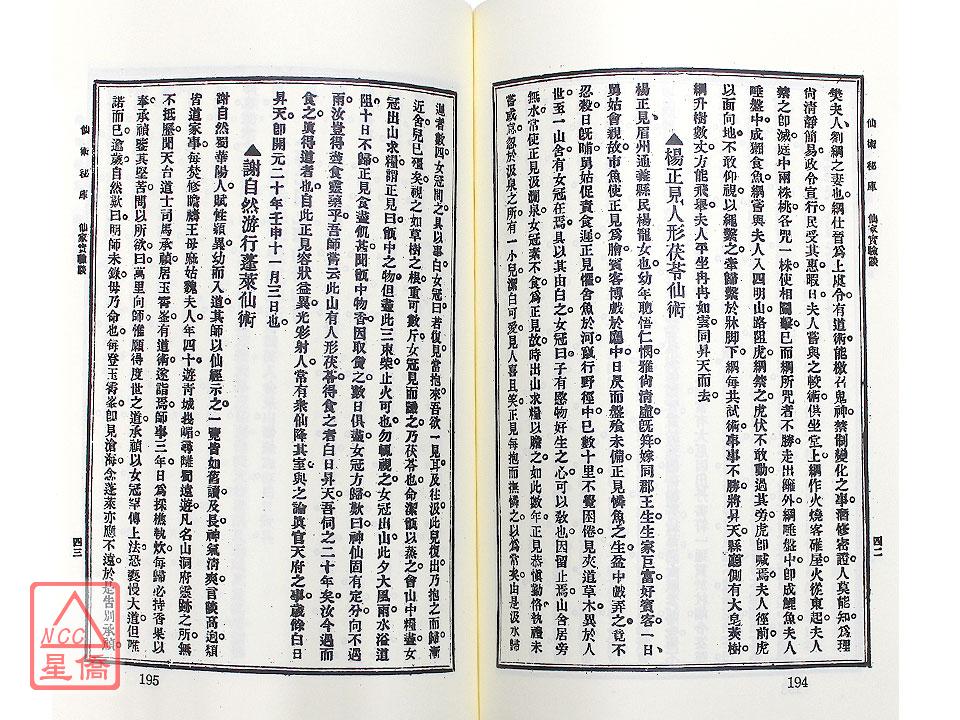 仙術秘庫　仙家實驗談
四二
樊夫人劉綱之妻也綱仕晉為上虞令有道術能檄召鬼神禁制變化之事潛修密證人莫能知為理
尚清靜簡易政令宣行民受其惠暇日夫人嘗與之較術俱坐堂上綱作火燒客碓屋火從東起夫人
禁之卽滅庭中兩株桃各咒一株使相鬭擊已而綱所咒者不勝走出籬外綱唾盤中卽成鯉魚夫人
唾盤中成獺食魚綱嘗與夫人入四明山路阻虎綱禁之虎伏不敢動過其旁虎卽㘎焉夫人徑前虎
以面向地不敢仰視以繩繫之牽歸繫於牀脚下綱每共試術事事不勝將昇天縣廳側有大皂莢樹
綱升樹數丈方能飛舉夫人平坐冉冉如雲同昇天而去
▲楊正見人形茯苓仙術
楊正見眉州通義縣民楊寵女也幼年聰悟仁憫雅尙淸虛旣笄嫁同郡王生生家巨富好賓客一日
舅姑會親故市魚使正見為膾賓客博戲於廳中日昃而盤飧未備正見憐魚之生盆中戲弄之竟不
忍殺日旣晡舅姑促責食遲正見懼舍魚於河竄行野徑中已數十里不覺困倦見夾道草木異於人
世至一山舍有女冠在焉具以其由白之女冠曰子有愍物好生之心可以敎也因留止焉山舍居旁
無水常使正見汲澗泉女冠素不食為正見故時出山求糧以贍之如此數年正見恭愼勤恪執禮未
嘗或怠忽於汲泉之所有一小兒潔白可愛見人喜且笑正見每抱而撫憐之以為常矣由是汲水歸
194
遲者數四女冠問之具以事白女冠曰若復見當抱來吾欲一見耳及往汲此兒復出乃抱之而歸漸
近舍兒已殭矣視之如草樹之根重可數斤女冠見而識之乃茯苓也命潔甑以蒸之會山中糧盡女
冠出山求糧謂正見曰甑中之物但盡此三束柴止火可也勿輒視之女冠出山此夕大風雨水溢道
阻十日不歸正見食盡飢甚聞甑中物香因取食之數日俱盡女冠方歸歎曰神仙固有定分向不遇
雨汝豈得盡食靈藥乎吾師嘗云此山有人形茯苓得食之者白日昇天吾伺之二十年矣汝今遇而
食之眞得道者也自此正見容狀益異光彩射人常有衆仙降其室與之論眞官天府之事歲餘白日
昇天卽開元二十年壬申十一月三日也
▲謝自然游行蓬萊仙術
謝自然蜀華陽人賦性穎異幼而入道其師以仙經示之一覽皆如舊讀及長神氣淸爽言談高逈類
皆道家事每焚修瞻禱王母麻姑魏夫人年四十遊靑城峨嵋尋離蜀遠遊凡名山洞府靈跡之所無
不抵歷聞天台道士司馬承禎居玉霄峯有道術遂詣焉師事三年日為採樵執炊每歸必持香果以
奉承禎鑒其堅苦問以所欲曰萬里向師惟願得度世之道承禎以女冠罕傳上法恐褻慢大道但唯
諾而已逾歲自然歎曰明師未錄毋乃命也每登玉霄峯卽見滄海念蓬萊亦應不遠於是告別承禎
仙術秘庫　仙家實驗談
四三
195
NCC
星僑